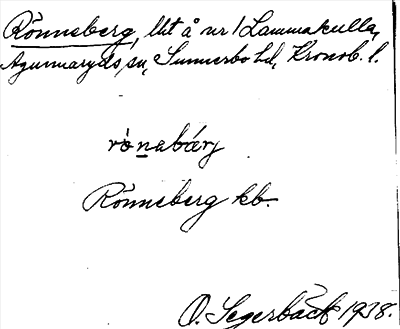 Rönneberg, lht å nr 1 Lammakulla,
Agunnaryds sn, Sunnerbo hd, Kronob. l.
rònabærj
Rönneberg kb.
O. Segerbäck 1938.